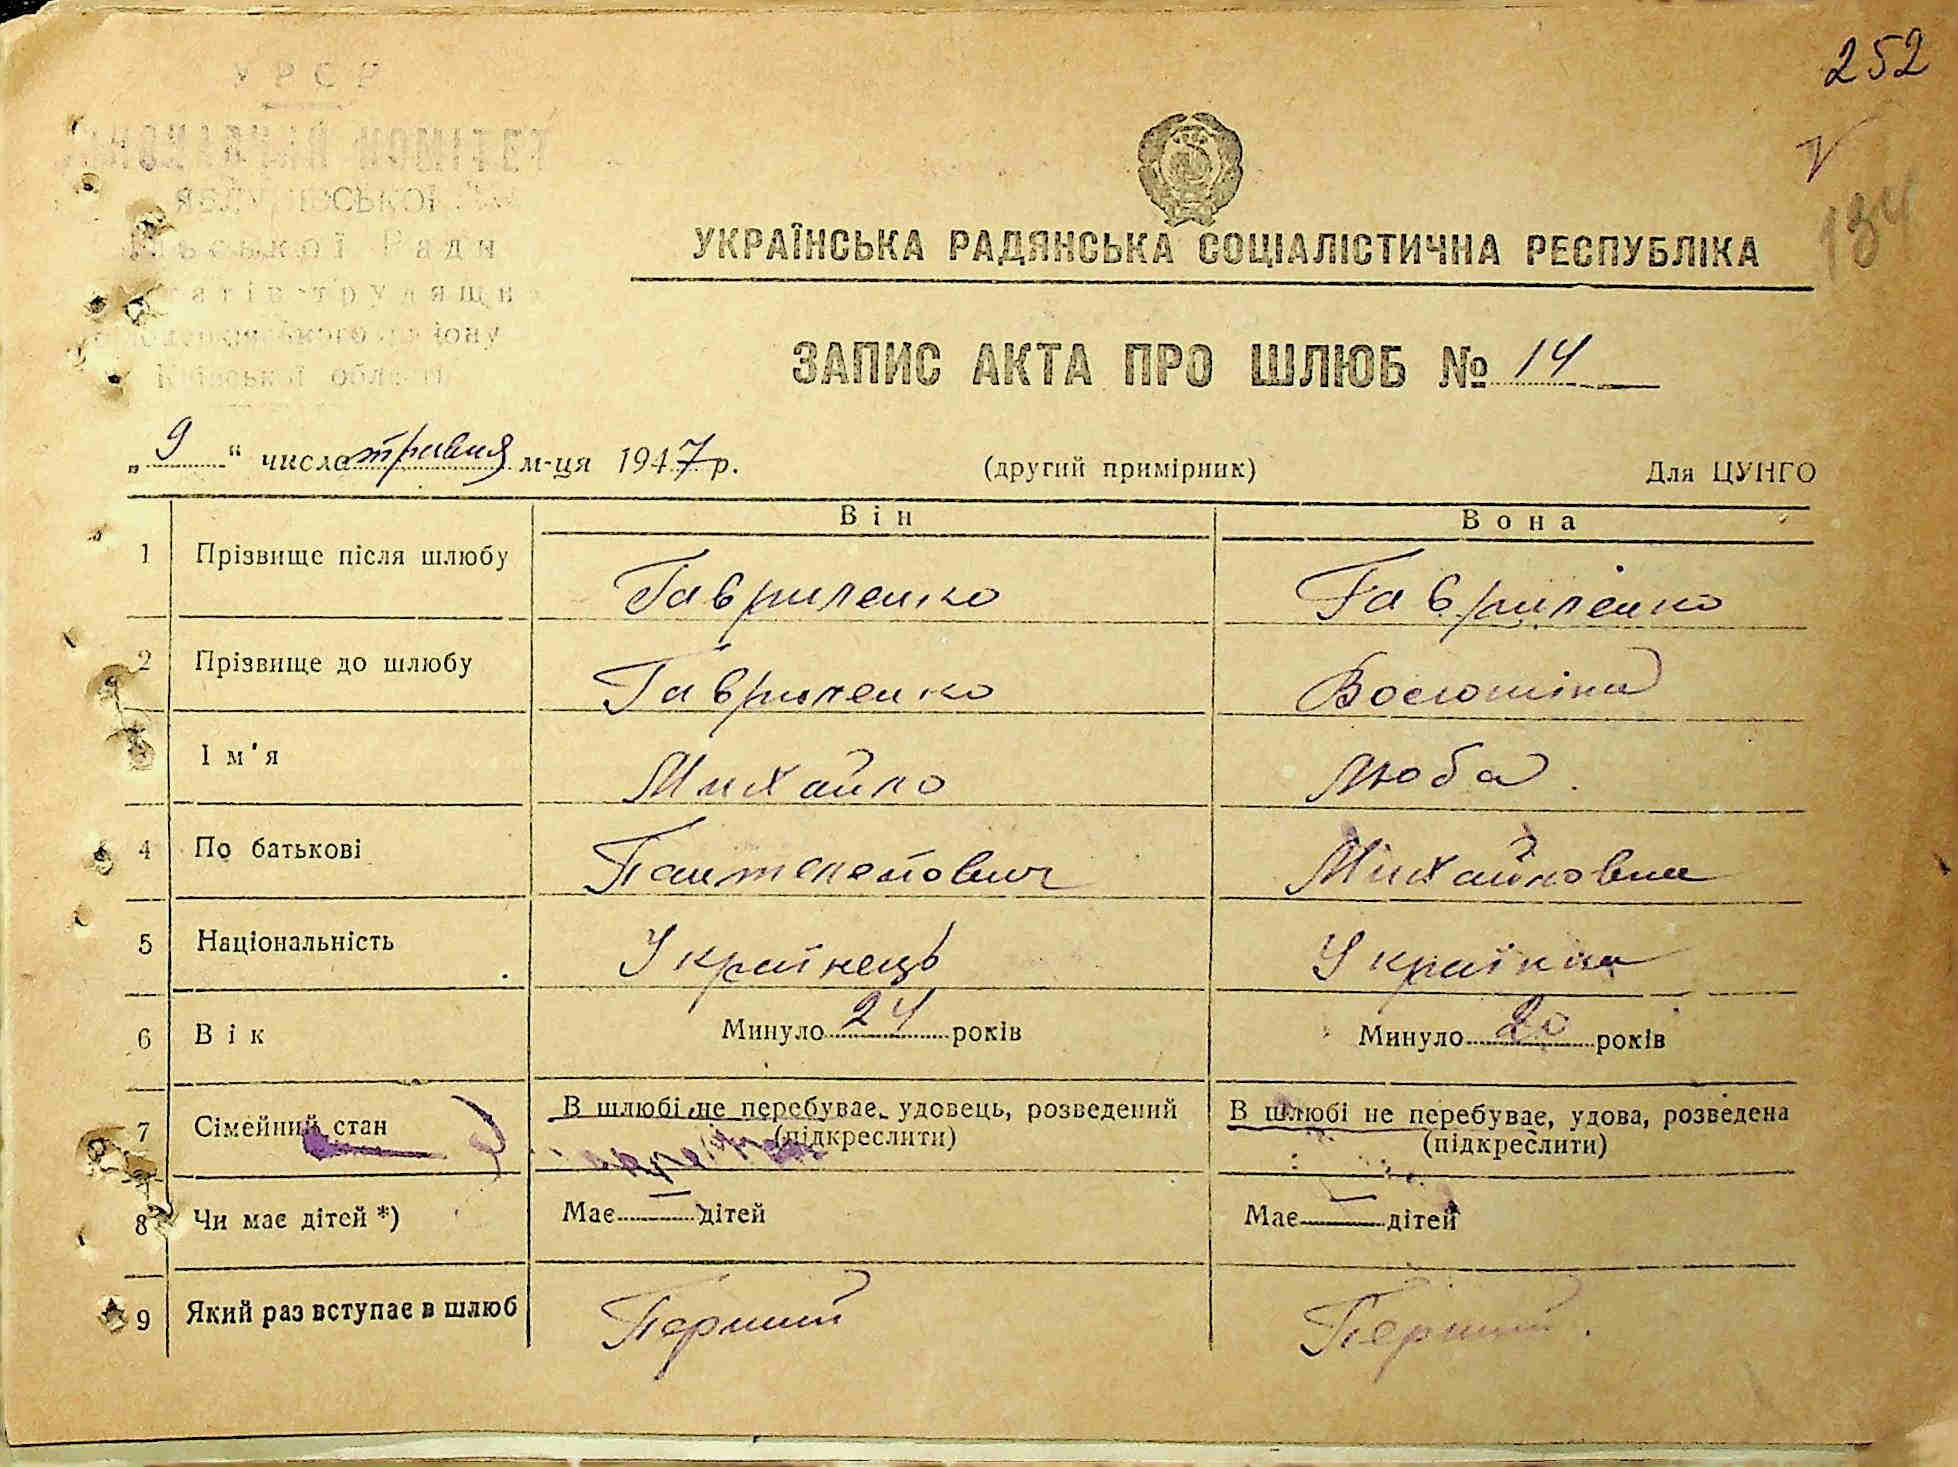 252
У Р С Р
КОМІТЕТ
134
Ради
УКРАЇНСЬКА РАДЯНСЬКА СОЦІАЛІСТИЧНА РЕСПУБЛІКА
району
ЗАПИС АКТА ПРО ШЛЮБ № 14
„ 9 “ числа травня м-ця 1947 р. (другий примірник) Для ЦУНГО
Він Вона
1 Прізвище після шлюбу Гавриленко Гавриленко
2 Прізвище до шлюбу Гавриленко
Ім'я Михайло Люба.
4 По батькові Пантелейович Михайловна
5 Національність Українець Українка
6 Вік Минуло 24 років Минуло 20 років
7 Сімейний стан В шлюбі не перебуває, удовець, розведений В шлюбі не перебуває, удова, розведена
(підкреслити) (підкреслити)
8 Чи має дітей *) Має — дітей Має — дітей
9 Який раз вступає в шлюб Перший Перший.